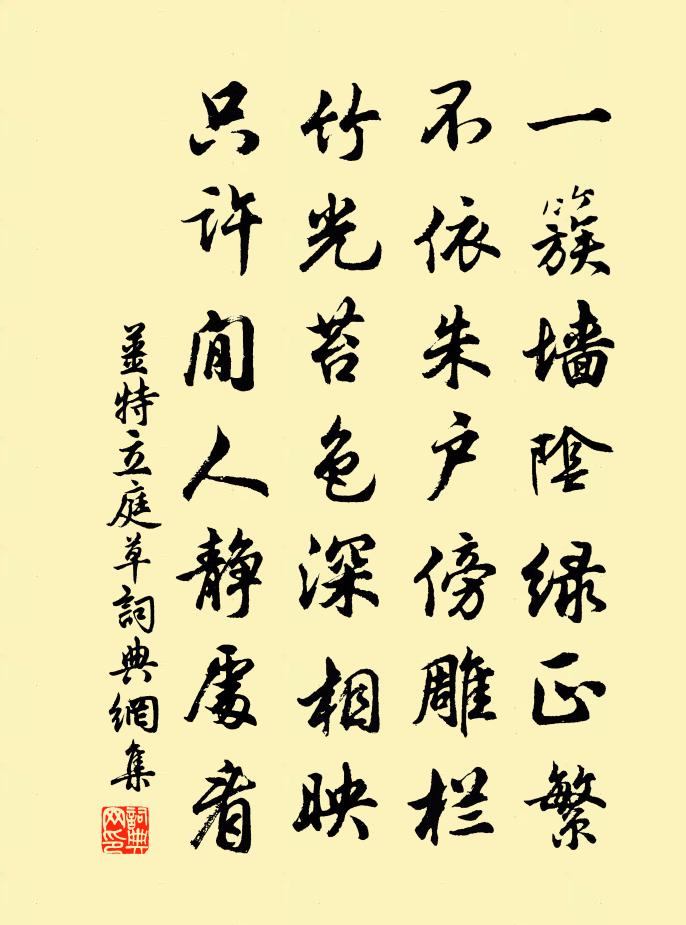 一簇墙阴绿正繁
不依朱户傍雕栏
竹光苔色深相映
只许闲人静處看
姜特立庭草詞典網集
詞典网印